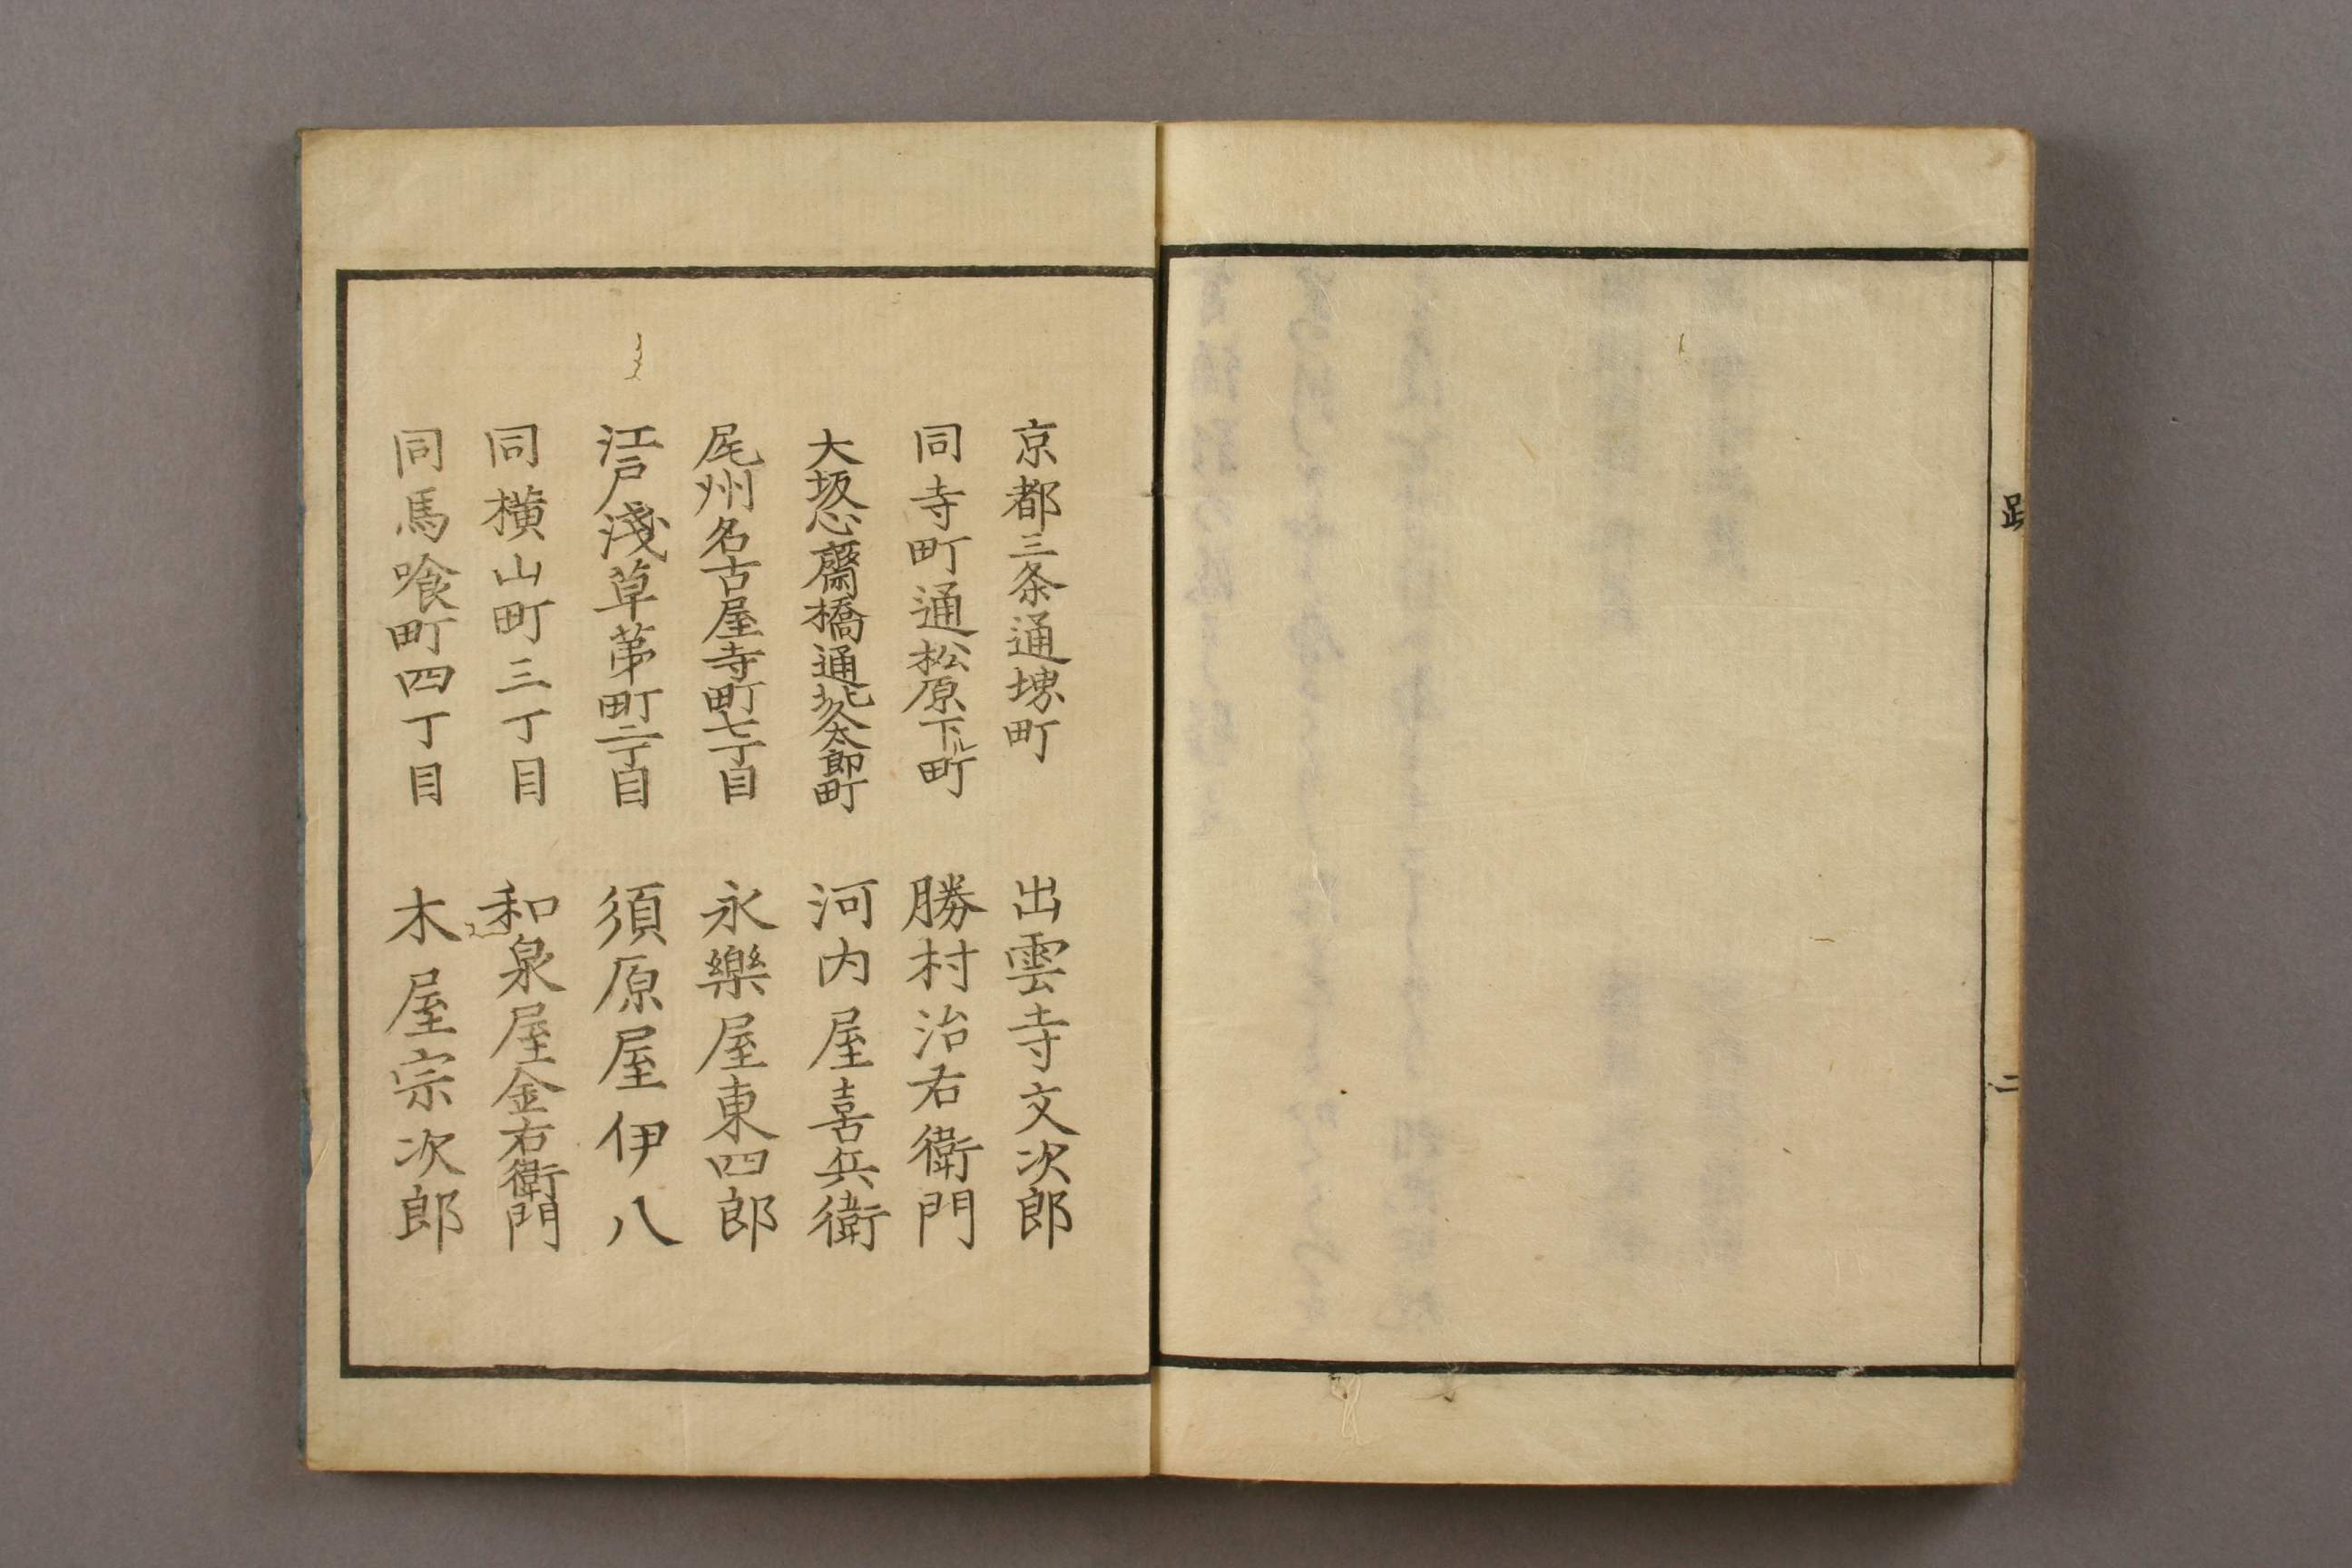 跋
二
京都三条通堺町 出雲寺文次郎
同寺町通松原下ル町 勝村治右衛門
大坂心齋橋通北久太郎町 河内屋喜兵衛
尾州名古屋寺町七丁目 永樂屋東四郎
江戸淺草茅町二丁目 須原屋伊八
同横山町三丁目 和泉屋金右衛門
同馬喰町四丁目 木屋宗次郎